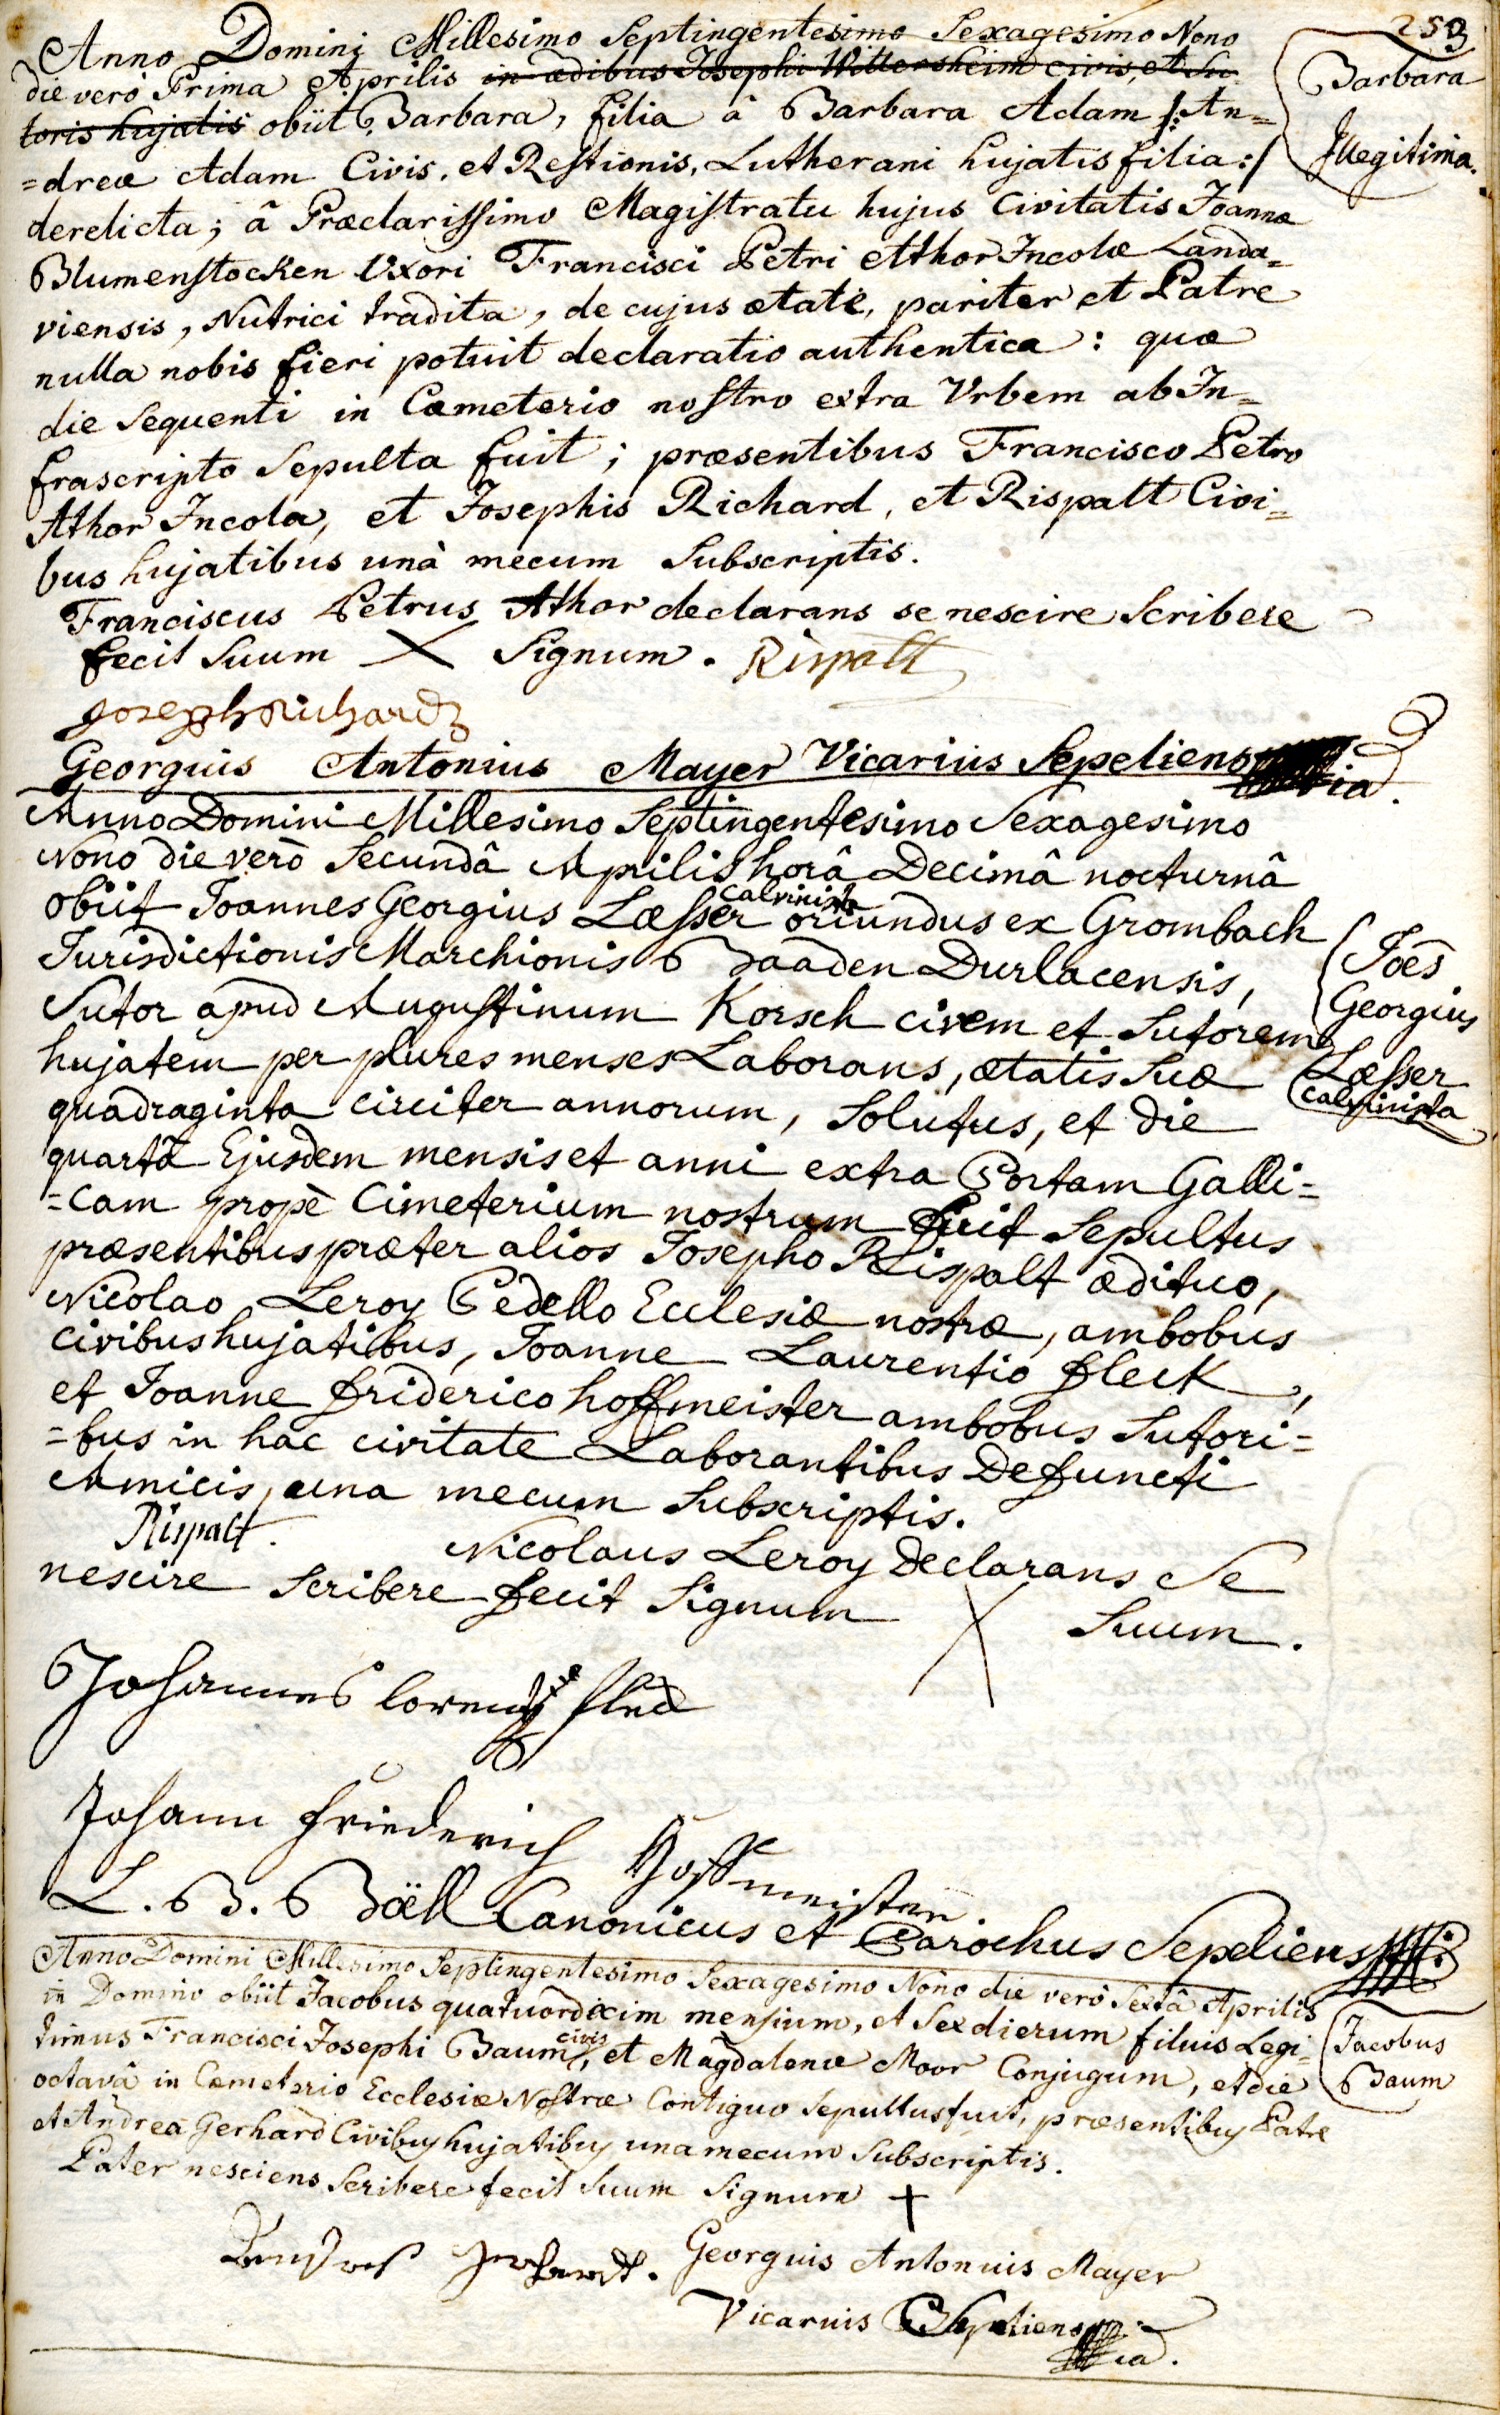 253
Anno Domini Millesimo Septingentesimo Sexagesimo Nono
die verò Prima Aprilis in ædibus Josephi Wittersheim civis, et Su
toris hujatis obiit Barbara, filia â Barbara Adam /: An=
=dreæ Adam Civis, et Restionis, Lutherani hujatis filia :/
derelicta; â Præclarissimo Magistratu hujus Civitatis Joannæ
Blumenstocken Uxori Francisci Petri Athor Incolæ Landa=
viensis, Nutrici tradita, de cujus ætate, pariter et Patre
nulla nobis fieri potuit declaratio authentica: quæ
die sequenti in Cæmeterio nostro extra Urbem ab In=
frascripto Sepulta fuit; præsentibus Francisco Petro
Athor Incola, et Josephis Richard, et Rispalt Civi=
bus hujatibus unà mecum Subscriptis.
Barbara
Illegitima.
Franciscus Petrus Athor declarans se nescire Scribere
fecit Suum X Signum. Rispalt
Joseph Richard
Georgius Antonius Mayer Vicarius Sepeliens
Anno Domini Millesimo Septingentesimo Sexagesimo
Nono die verò Secundâ Aprilis horâ Decimâ nocturnâ
obiit Joannes Georgius Læsser calvinista oriundus ex Grombach
Jurisdictionis Marchionis Baaden Durlacensis,
Sutor apud Augustinum Korsch civem et Sutorem
hujatem per plures menses Laborans, ætatis Suæ
quadraginta circiter annorum, Solutus, et die
quartâ Ejusdem mensis et anni extra Portam Galli=
=cam propè Cimeterium nostrum fuit Sepultus
præsentibus præter alios Josepho Rispalt ædituo,
Nicolao Leroy Pedello Ecclesiæ nostræ, ambobus
civibus hujatibus, Joanne Laurentio fleck,
et Joanne friderico hoffmeister ambobus Sutori=
=bus in hac civitate Laborantibus Defuncti
Amicis, una mecum Subscriptis.
Joês
Georgius
Læsser
calvinista
Rispalt.
Nicolaus Leroy Declarans Se
nescire Scribere fecit Signum X Suum.
Johannes lorentz fleck
Johann Friederich Hoffmeister.
L. B. Bäll Canonicus et Parochus Sepeliens
Anno Domini Millesimo Septingentesimo Sexagesimo Nono die verò Sextâ Aprilis
in Domino obiit Jacobus quatuordecim mensium, et Sex dierum filius Legi=
timus Francisci Josephi Baum civis, et Magdalenæ Moor Conjugum, et die
octavâ in Cæmeterio Ecclesiæ Nostræ Contiguo Sepultus fuit, præsentibus Patre
et Andrea Gerhard Civibus hujatibus una mecum Subscriptis.
Jacobus
Baum
Pater nesciens Scribere fecit Suum Signum +
Andreas Gerhardt.
Georgius Antonius Mayer
Vicarius Sepeliens